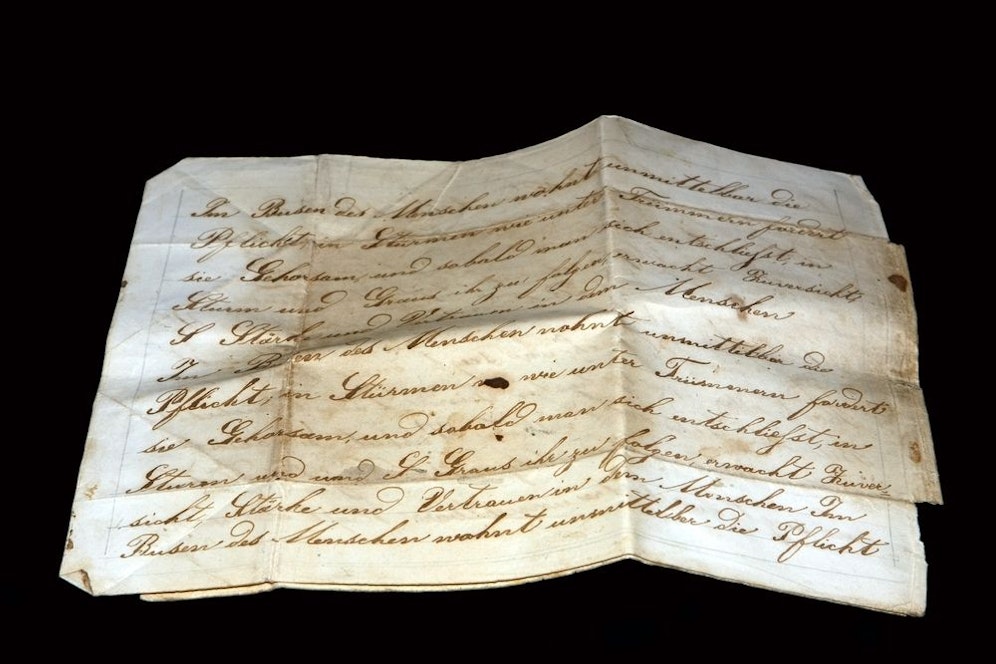 Im Busen des Menschen wohnt unmittelbar die
Pflicht, in Stürmen wie unter Trümmern fordert
sie Gehorsam, und sobald man sich entschliest, in
Sturm und Graus ihr zu folgen, erwacht Zuversicht,
S Stärke und Vertrauen in dem Menschen
Im Busen des Menschen wohnt unmittelbar die
Pflicht, in Stürmen wie unter Trümmern fordert
sie Gehorsam, und sobald man sich entschliest, in
Sturm und und Graus ihr zu folgen, erwacht Zuver-
sicht, Stärke und Vertrauen in dem Menschen Im
Busen des Menschen wohnt unmittelbar die Pflicht